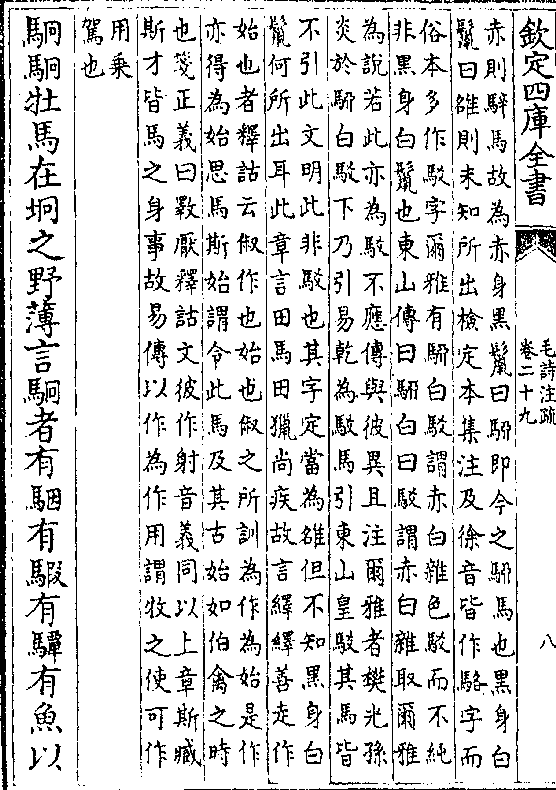 欽定四庫全書
毛詩注疏
卷二十九
八
赤則騂馬故為赤身黑鬛曰駵即今之駵馬也黑身白
鬛曰雒則未知所出檢定本集注及徐音皆作駱字而
俗本多作駮字爾雅有駵白駮謂赤白雜色駮而不純
非黑身白鬛也東山傳曰駵白曰駮謂赤白雜取爾雅
為說若此亦為駮不應傳與彼異且注爾雅者樊光孫
炎於駵白駮下乃引易乾為駮馬引東山皇駮其馬皆
不引此文明此非駮也其字定當為雒但不知黑身白
鬛何所出耳此章言田馬田獵尚疾故言繹繹善走作
始也者釋詁云俶作也始也俶之所訓為作為始是作
亦得為始思馬斯始謂令此馬及其古始如伯禽之時
也箋正義曰斁厭釋詁文彼作射音義同以上章斯臧
斯才皆馬之身事故易傳以作為作用謂牧之使可作
用乗
駕也
駉駉牡馬在坰之野薄言駉者有駰有騢有驔有魚以